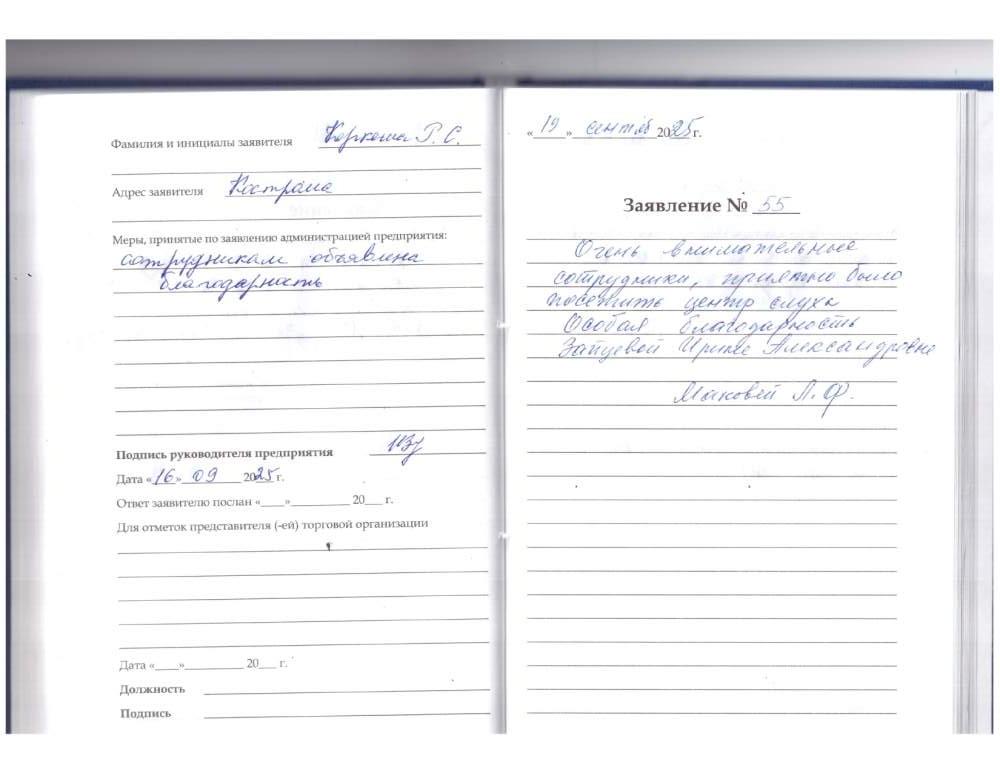 Фамилия и инициалы заявителя Коркоша Г. С.
Адрес заявителя Кострома
Меры, принятые по заявлению администрацией предприятия:
сотрудникам объявлена
благодарность
Подпись руководителя предприятия
Дата «16» 09 2025 г.
Ответ заявителю послан «____»__________ 20___ г.
Для отметок представителя (-ей) торговой организации
Дата «____»__________ 20___ г.
Должность
Подпись
«19» сентяб 2025 г.
Заявление № 55
Очень внимательные
сотрудники, приятно было
посетить центр слуха
Особая благодарность
Зайцевой Ирине Александровне
Маковей Л. Ф.